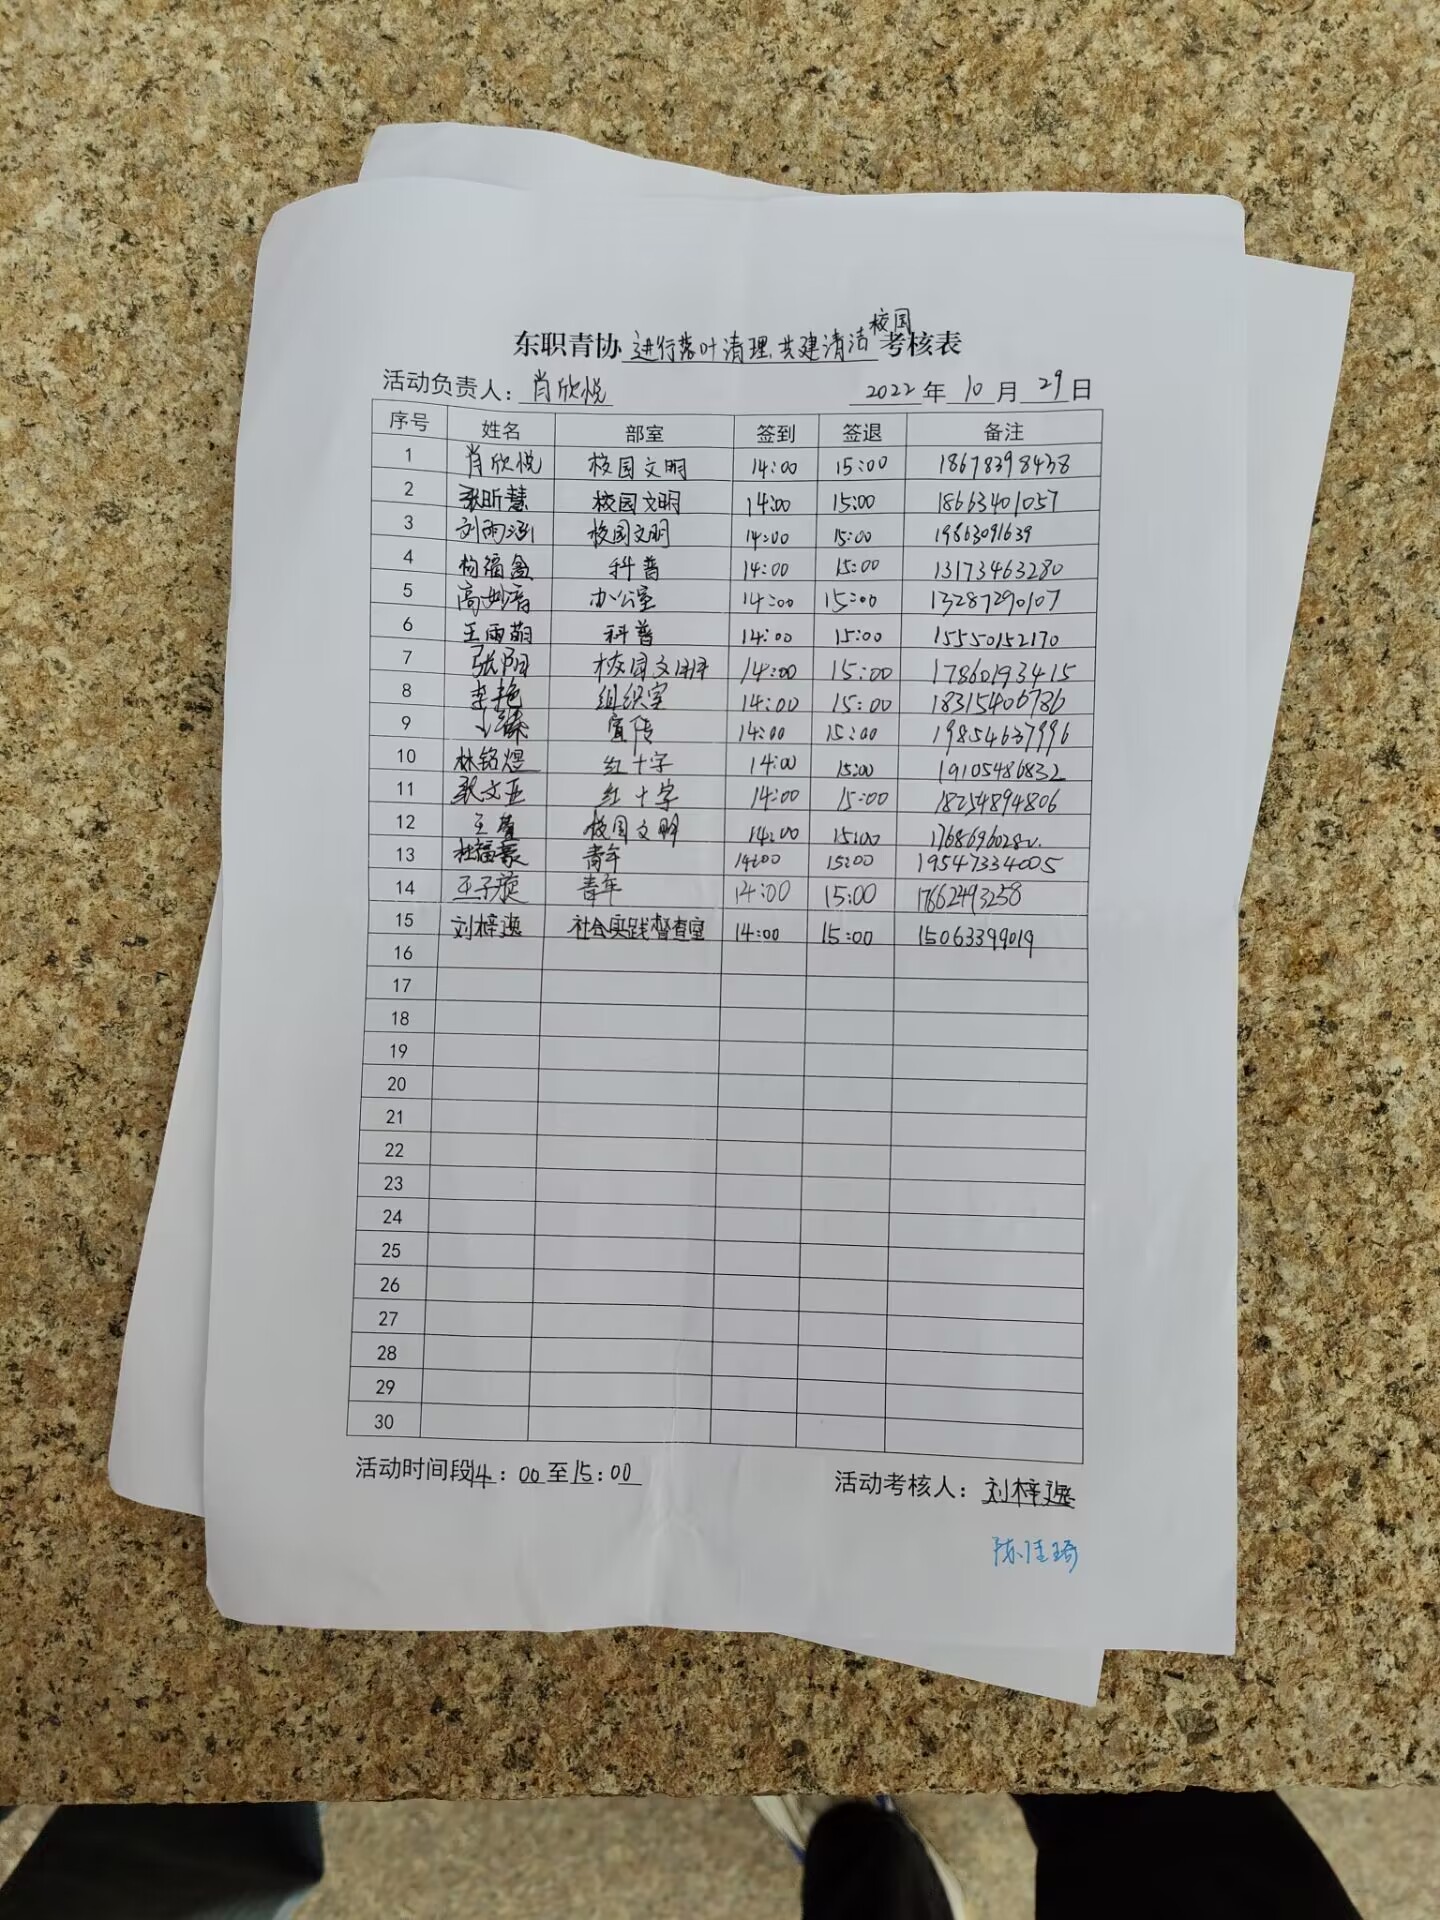 校园
东职青协 进行落叶清理,共建清洁 考核表
活动负责人：肖欣悦 2022 年 10 月 29 日
序号 姓名 部室 签到 签退 备注
1 肖欣悦 校园文明 14:00 15:00 18678398438
2 张昕慧 校园文明 14:00 15:00 18663401057
3 刘雨涵 校园文明 14:00 15:00 19863091639
4 杨福鑫 科普 14:00 15:00 13173463280
5 高妙香 办公室 14:00 15:00 13287290107
6 王雨萌 科普 14:00 15:00 15550152170
7 张阳 校园文明 14:00 15:00 17860193415
8 李艳 组织室 14:00 15:00 18315406786
9 宣传 14:00 15:00 19854637996
10 林铭煜 红十字 14:00 15:00 19105486832
11 张文亚 红十字 14:00 15:00 18254894806
12 校园文明 14:00 15:00
13 杜福豪 青年 14:00 15:00 19547334005
14 王子璇 青年 14:00 15:00 17662493258
15 刘梓逸 社会实践督查室 14:00 15:00 15063399019
16
17
18
19
20
21
22
23
24
25
26
27
28
29
30
活动时间段14：00至15：00 活动考核人：刘梓逸
陈佳琦